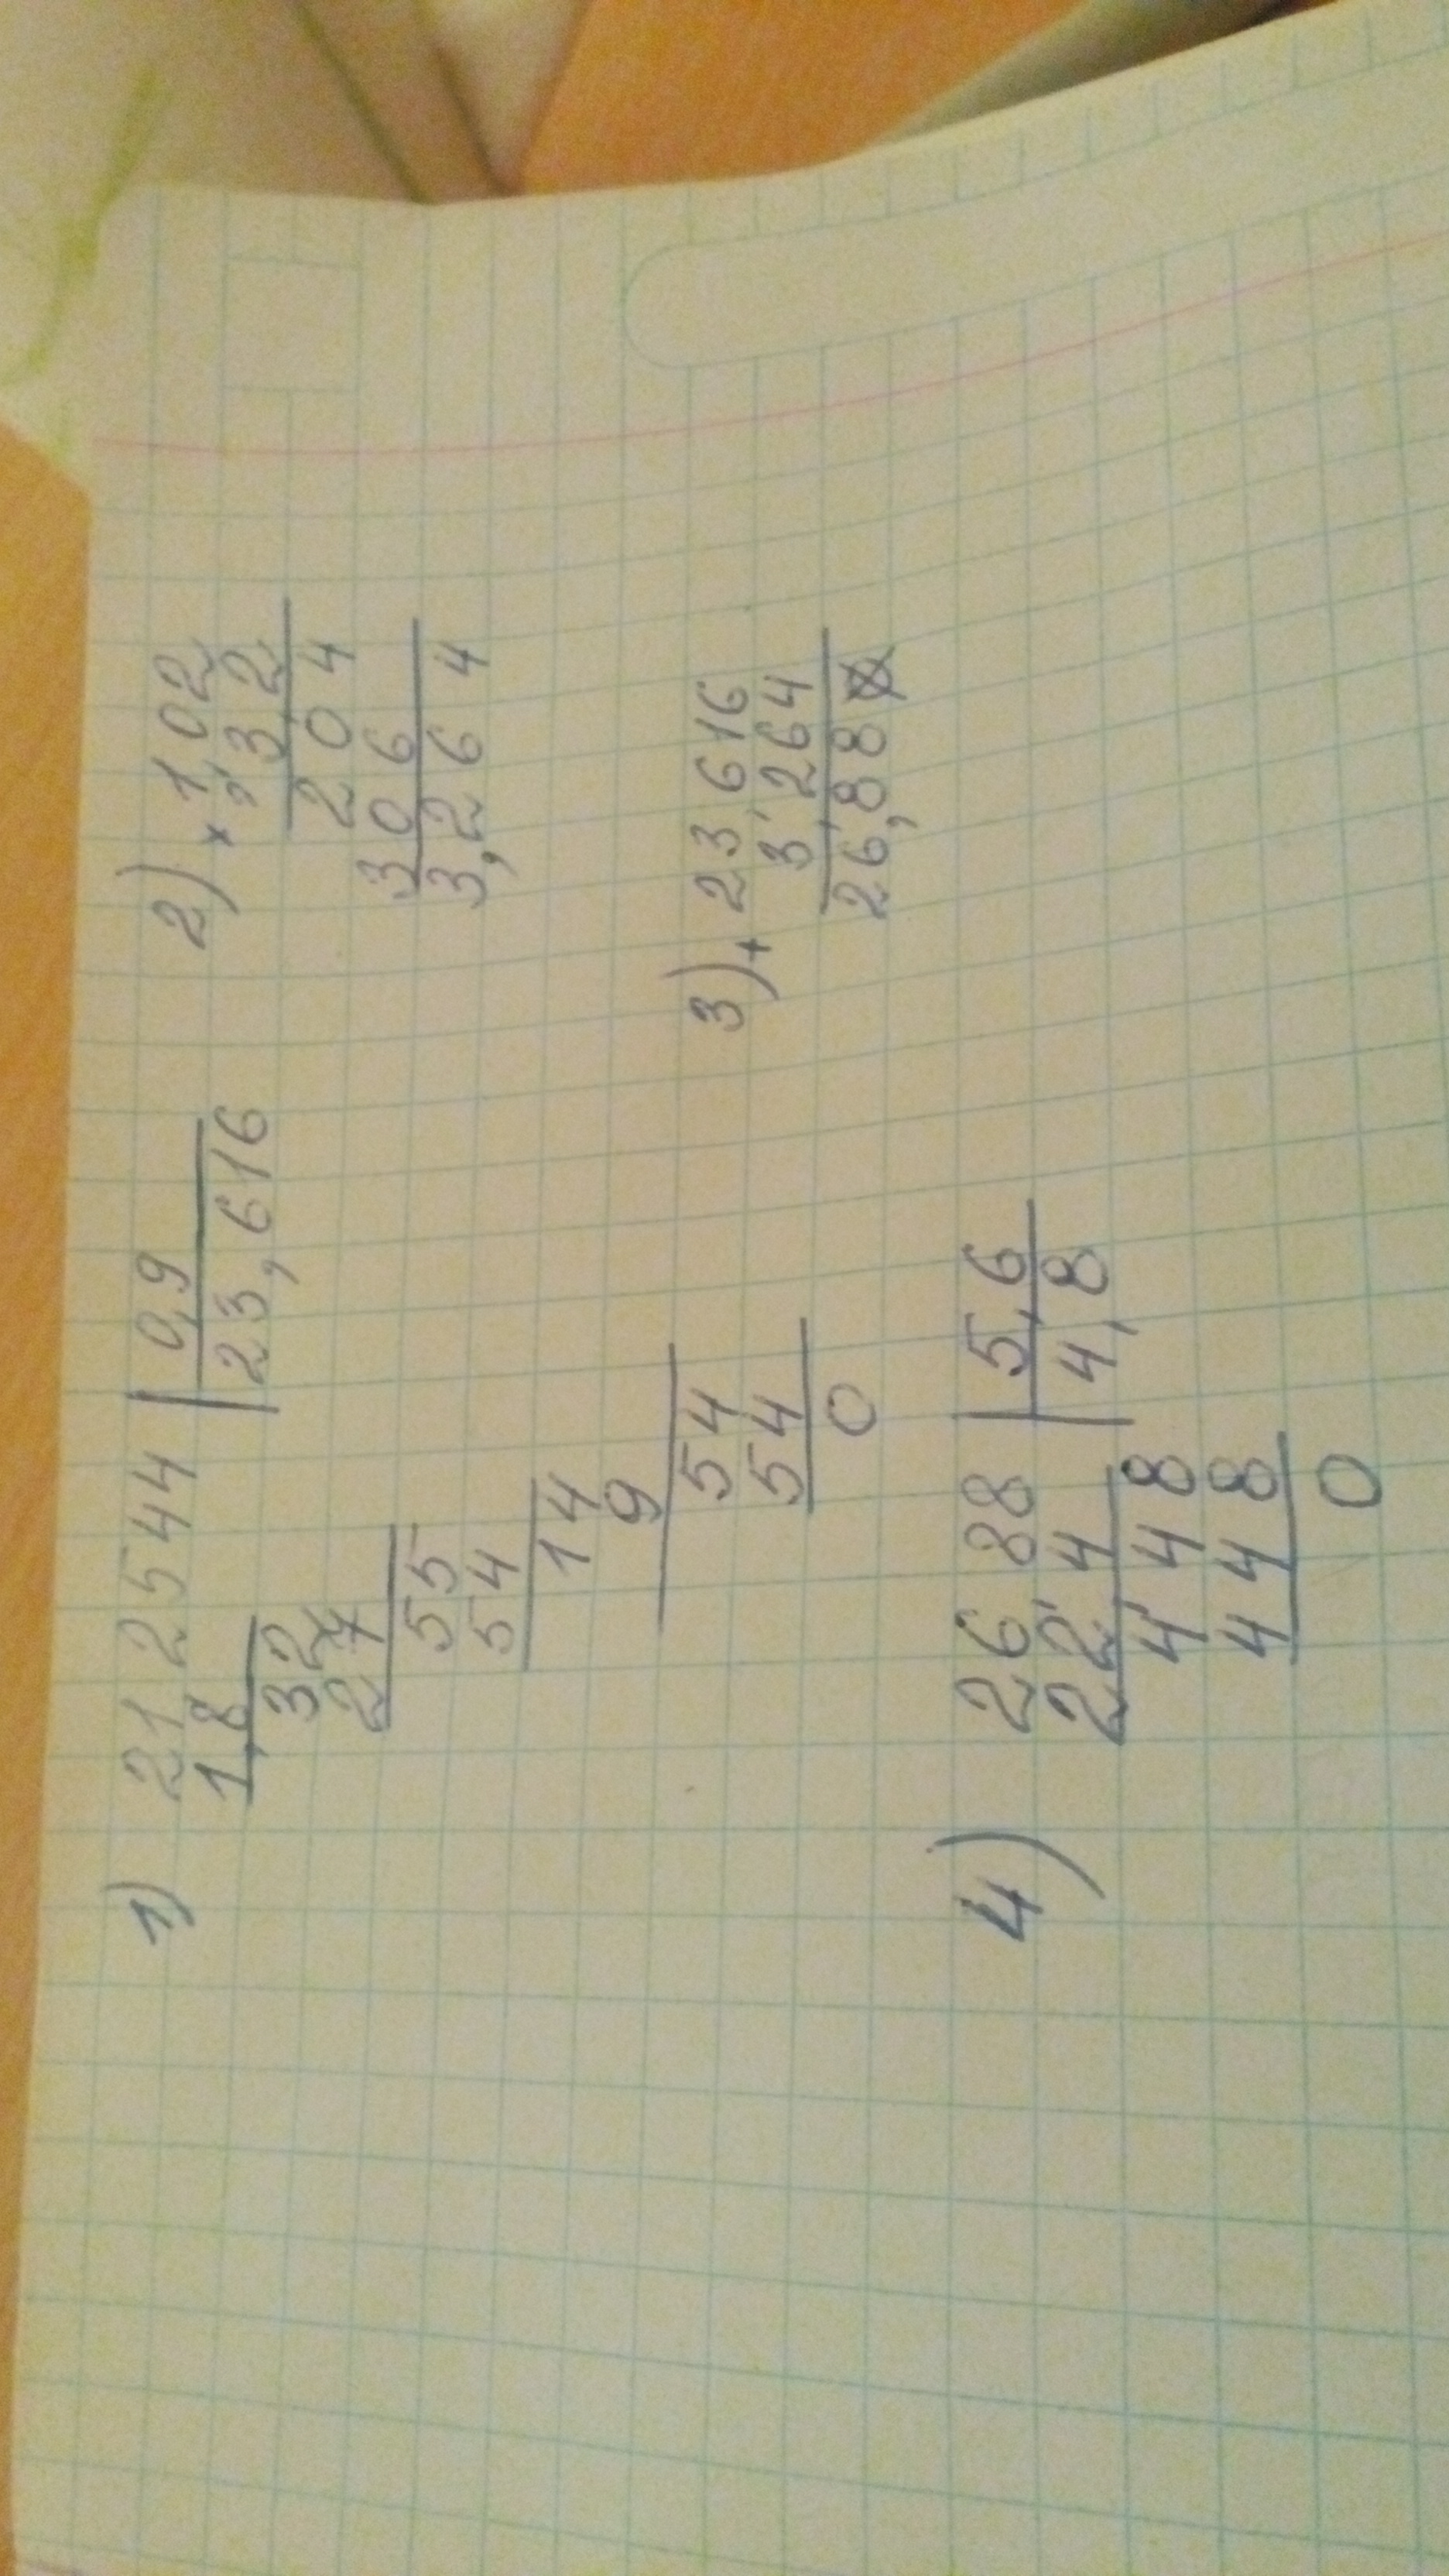 1) 21 2544 | 0,9
1,8 23,616
32
27
55
54
14
9
54
54
0
2) × 1,02
3,2
204
306
3,264
3) + 23,616
3,264
26,88
4) 26 88 | 5,6
22,4 4,8
448
448
0